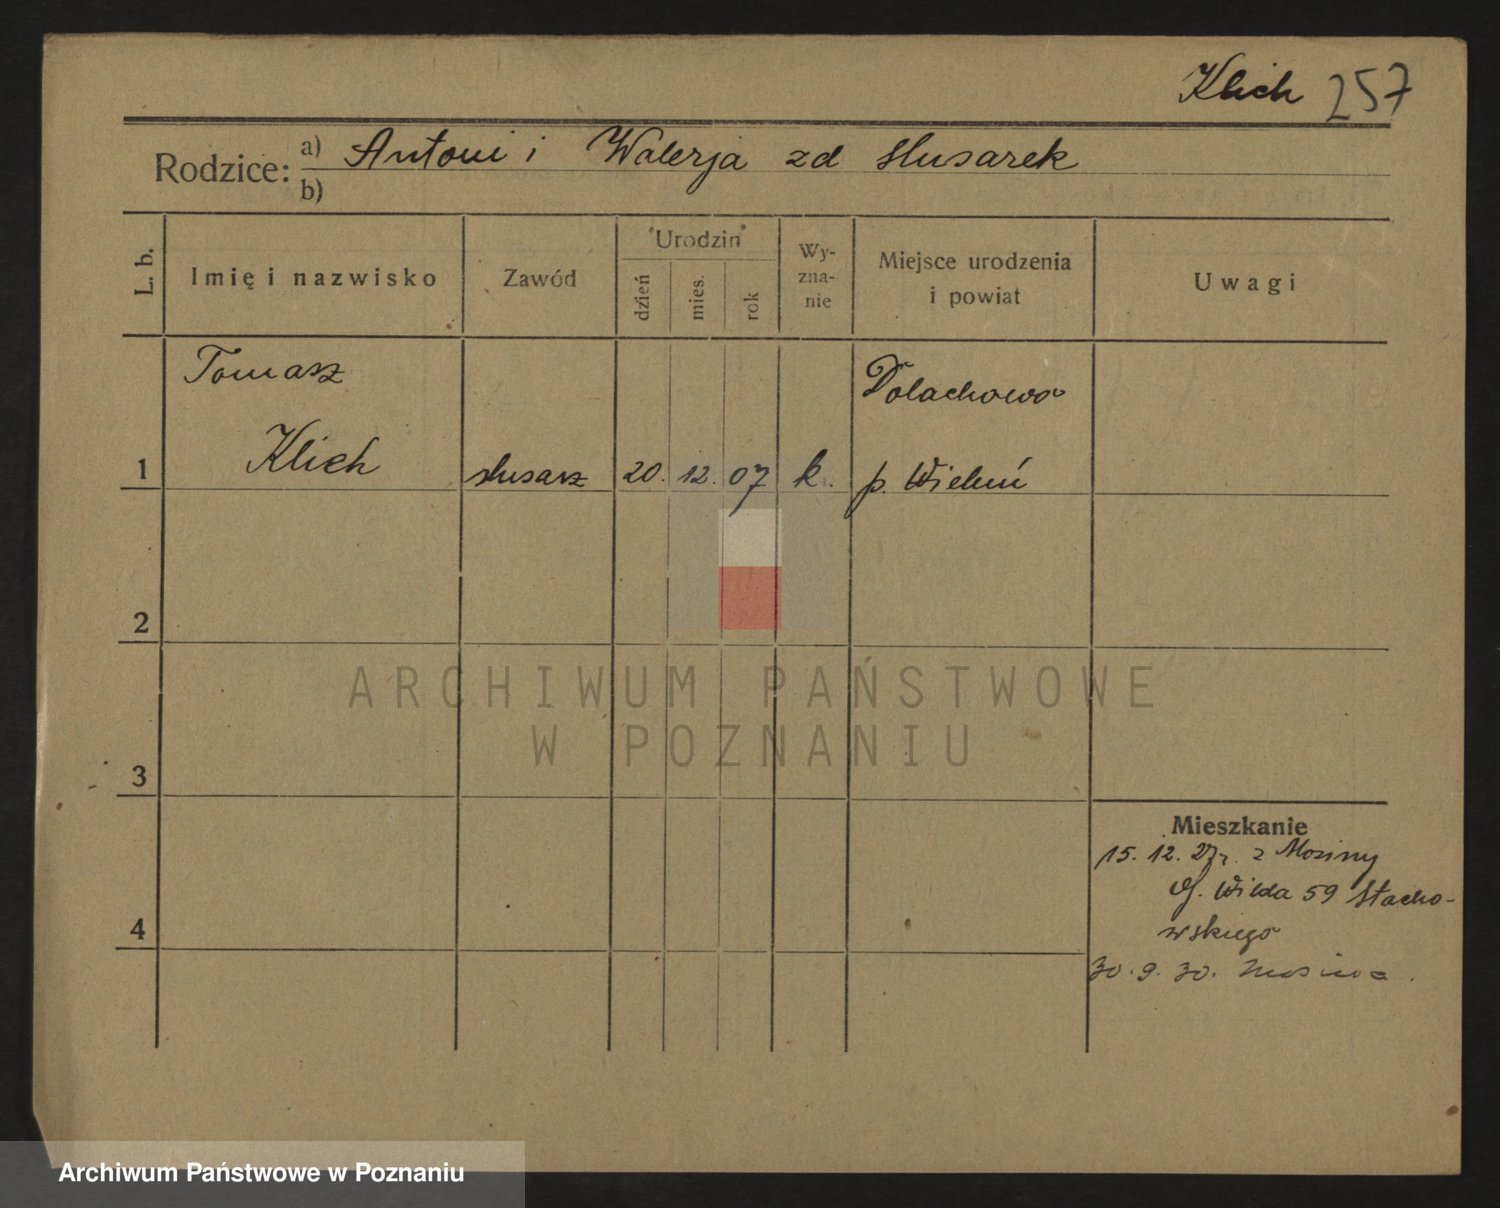 Klich 257
Rodzice: a) Antoni i Walerja zd Slusarek
b)
L. b.
Imię i nazwisko
Zawód
Urodzin
dzień
mies.
rok
Wy-
zna-
nie
Miejsce urodzenia
i powiat
Uwagi
Tomasz
Klich
1
slusarz
20. 12. 07
k.
Dolachowo
p. Wieluń
2
3
4
ARCHIWUM PAŃSTWOWE
W POZNANIU
Mieszkanie
15. 12. 27 r. z Mosiny
Wilda 59 Stacho-
wskiego
30. 9. 30. Mosina.
Archiwum Państwowe w Poznaniu